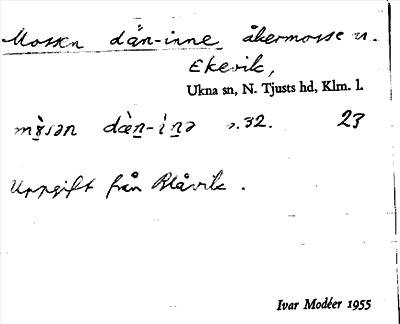 Mossen dän-inne, åkermosse n.
Ekevik,
Ukna sn, N. Tjusts hd, Klm. l.
dæ̀n-ìnə s. 32. 23
Uppgift från Blåvik.
Ivar Modéer 1955